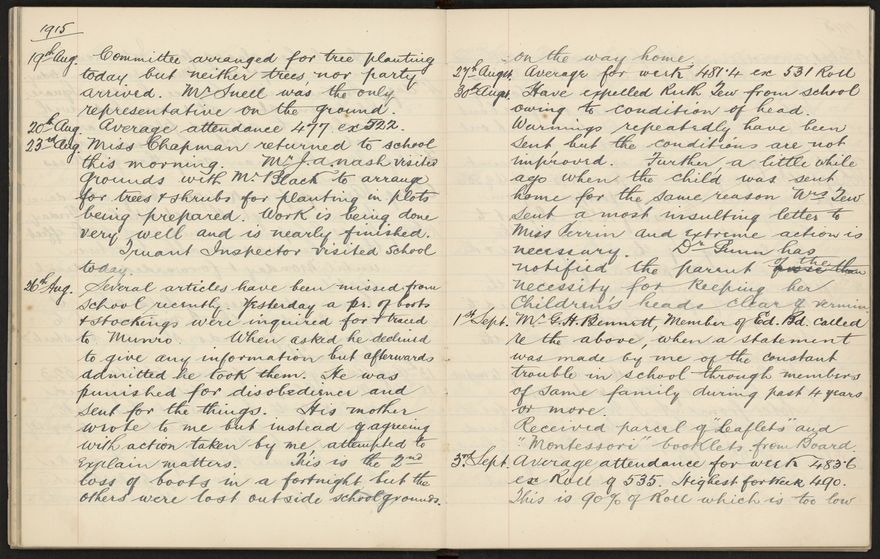 1915
19th Aug. Committee arranged for tree planting
today but neither trees nor party
arrived. Mr Snell was the only
representative on the ground.
20th Aug. Average attendance 477 ex 522.
23rd Aug. Miss Chapman returned to school
this morning. Mr J. A. Nash visited
Grounds with Mr Black to arrange
for trees & shrubs for planting in plots
being prepared. Work is being done
very well and is nearly finished.
Truant Inspector visited School
today.
26th Aug. Several articles have been missed from
School recently. Yesterday a pr. of boots
& stockings were inquired for & traced
to Munro. When asked he declined
to give any information but afterwards
admitted he took them. He was
punished for disobedience and
sent for the things. His mother
wrote to me but instead of agreeing
with action taken by me attempted to
explain matters. This is the 2nd
loss of boots in a fortnight but the
others were lost outside school grounds.
on the way home.
27th August. Average for week 481.4 ex 531 Roll
30th August. Have expelled Ruth Tew from school
owing to condition of head.
Warnings repeatedly have been
sent but the conditions are not
improved. Further a little while
ago when the child was sent
home for the same reason Mrs Tew
sent a most insulting letter to
Miss Perrin and extreme action is
necessary. Dr Dunn has
notified the parent of the
necessity for keeping her
Children's heads clear of vermin
1st Sept. Mr G. H. Bennett, Member of Ed. Bd. called
re the above, when a statement
was made by me of the constant
trouble in school through members
of same family during past 4 years
or more.
Received parcel of "Leaflets" and
"Montessori" booklets from Board.
3rd Sept. Average attendance for week 483.6
ex Roll of 535. Highest for Week 490.
This is 90% of Roll which is too low